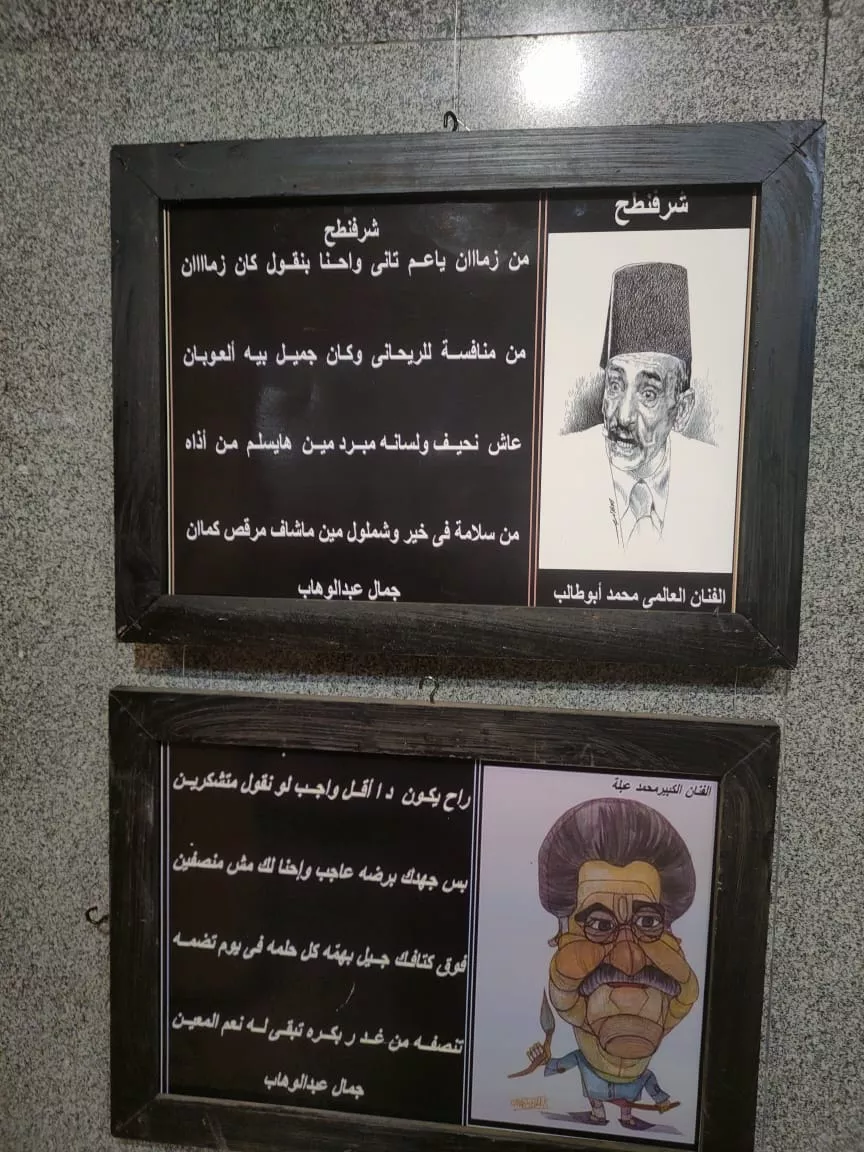 شرفنطح
شرفنطح
من زمااان ياعم تانى واحنا بنقول كان زماااان
من منافسة للريحانى وكان جميل بيه ألعوبان
عاش نحيف ولسانه مبرد مين هايسلم من أذاه
من سلامة فى خير وشملول مين ماشاف مرقص كماان
جمال عبدالوهاب
الفنان العالمى محمد أبوطالب
الفنان الكبيرمحمد عبلة
راح يكون دا أقل واجب لو نقول متشكرين
بس جهدك برضه عاجب وإحنا لك مش منصفين
فوق كتافك جيل بهمّه كل حلمه فى يوم تضمه
تنصفه من غدر بكره تبقى له نعم المعين
جمال عبدالوهاب